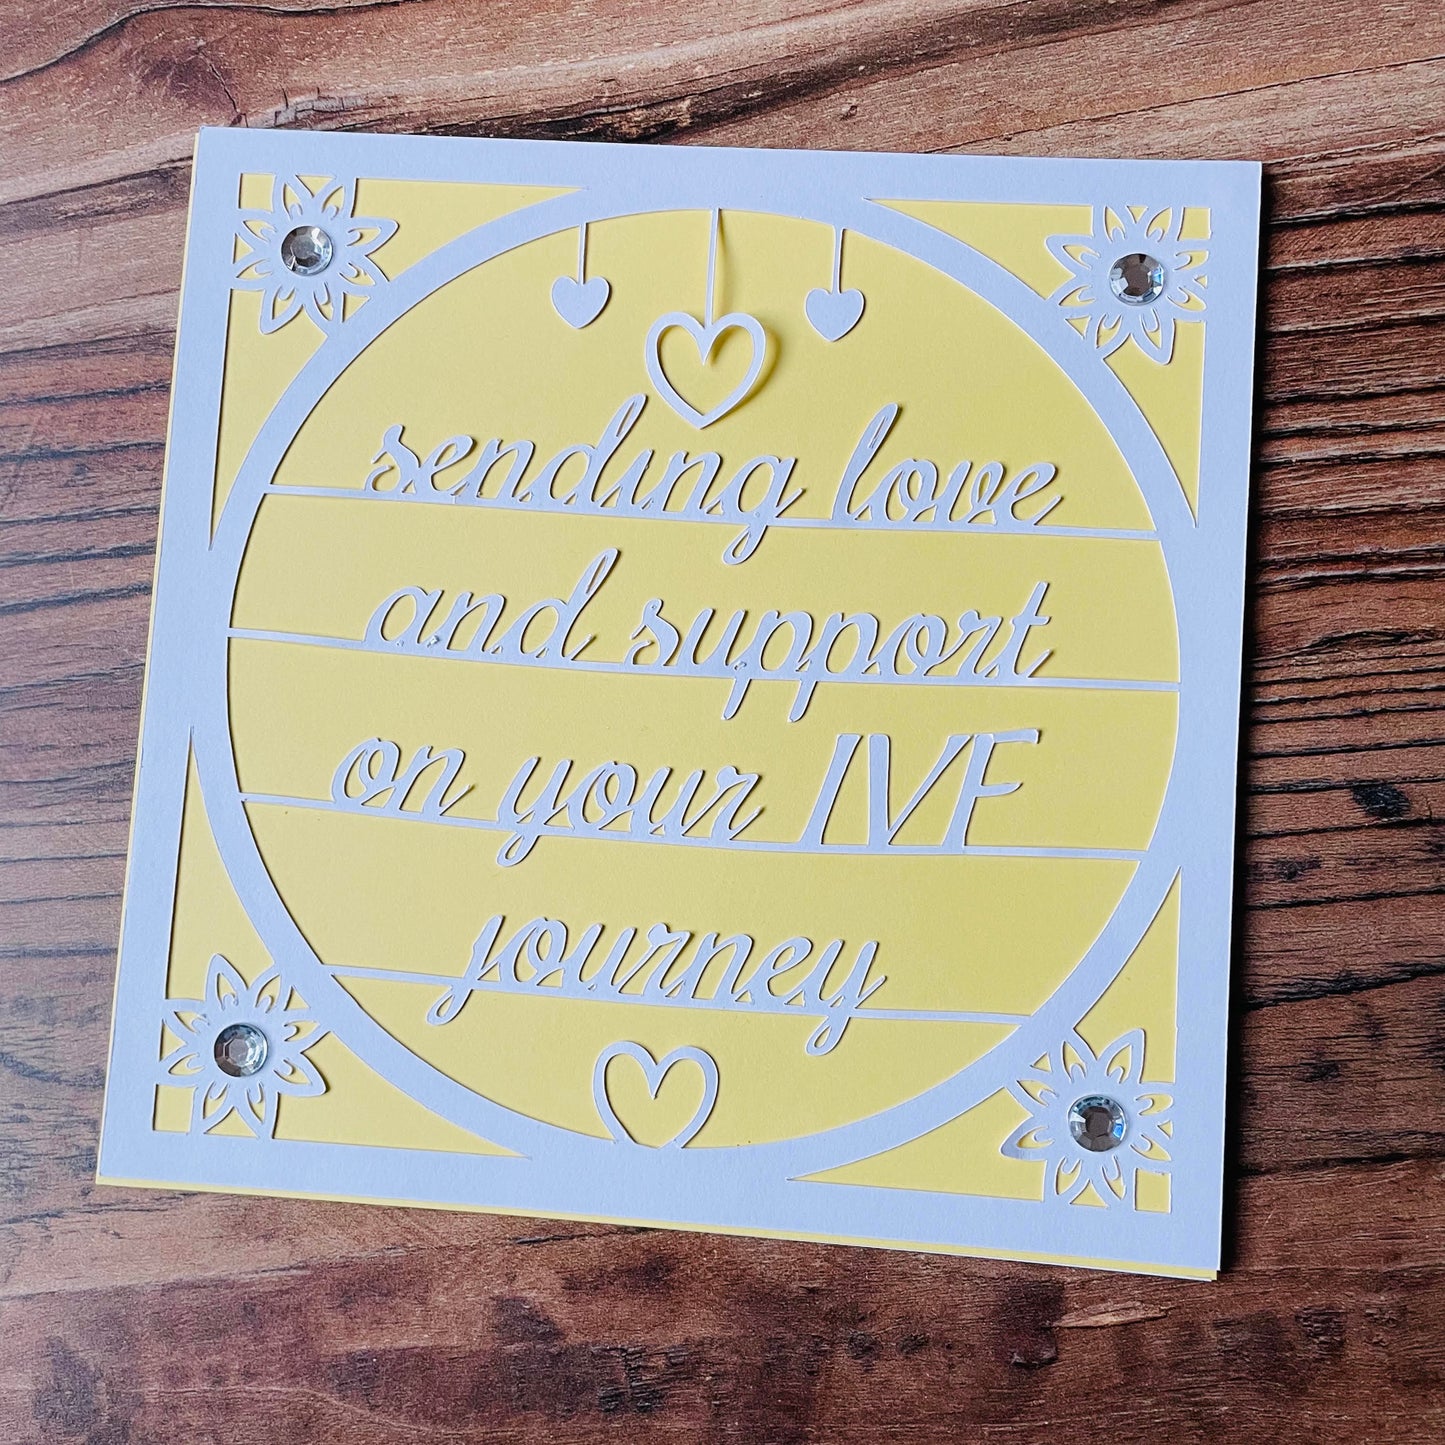 sending love
and support
on your IVF
journey